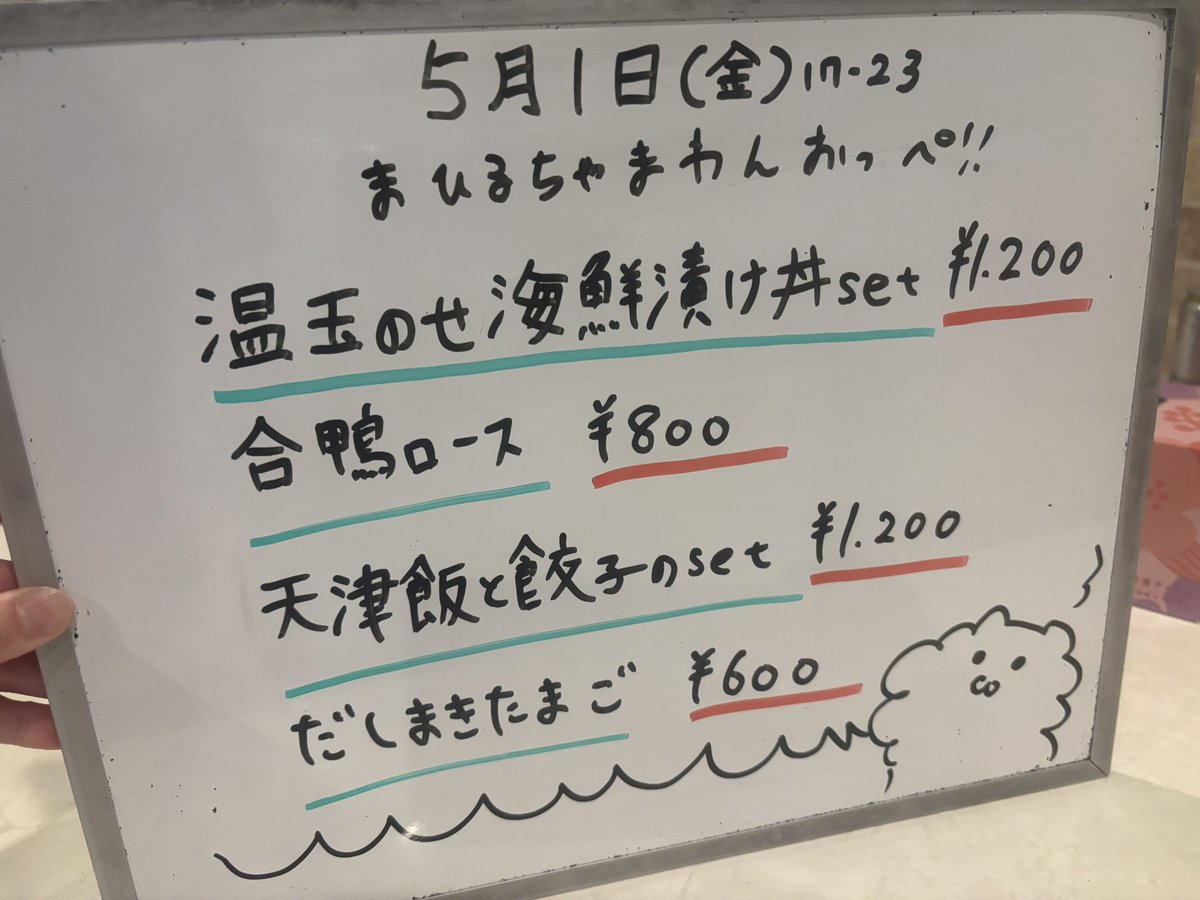 5月1日(金)17-23
まひるちゃまわんおっぺ!!
温玉のせ海鮮漬け丼set ¥1.200
合鴨ロース ¥800
天津飯と餃子のset ¥1.200
だしまきたまご ¥600